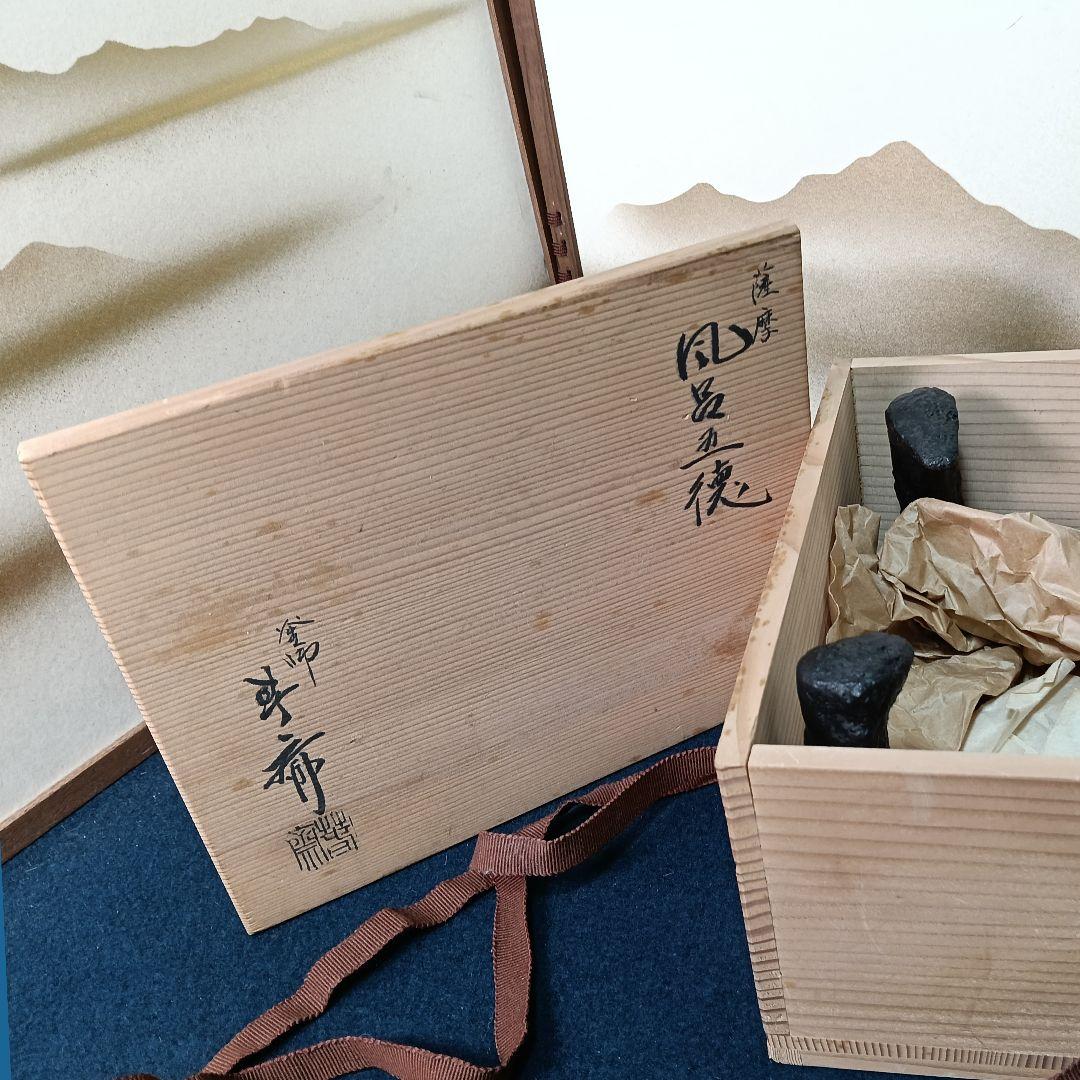 薩摩
風呂五徳
釜師